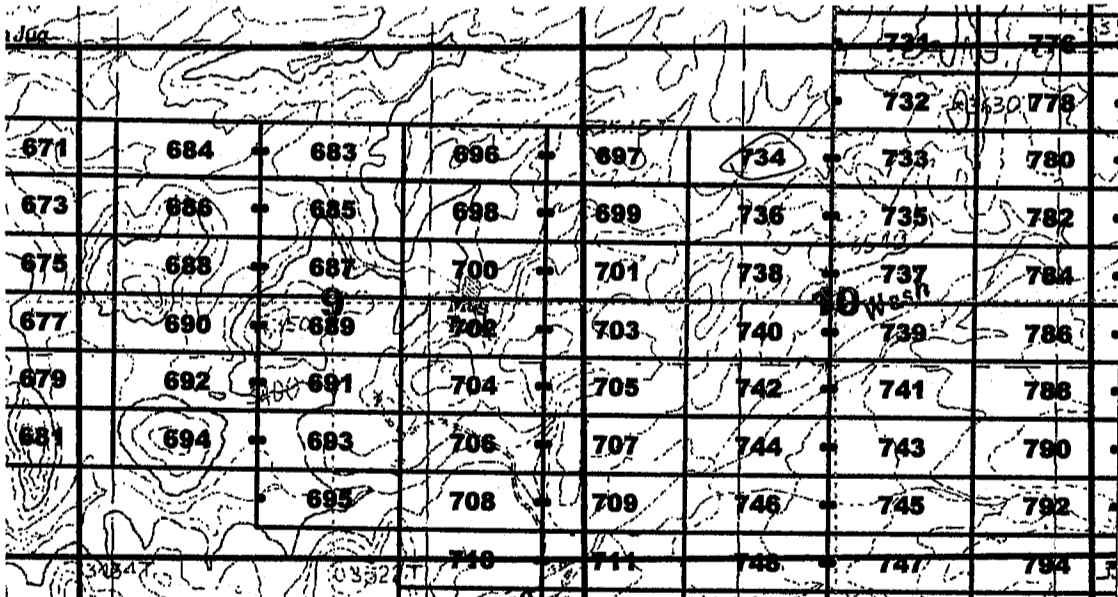 Jug
731 776
732 3630 778
671 684 683 696 697 734 733 780
673 686 685 698 699 736 735 782
675 688 687 700 701 738 737 784
9 10 Wash
677 690 689 702 703 740 739 786
679 692 691 704 705 742 741 788
681 694 693 706 707 744 743 790
695 708 709 746 745 792
710 711 748 747 794
3434T 03322T